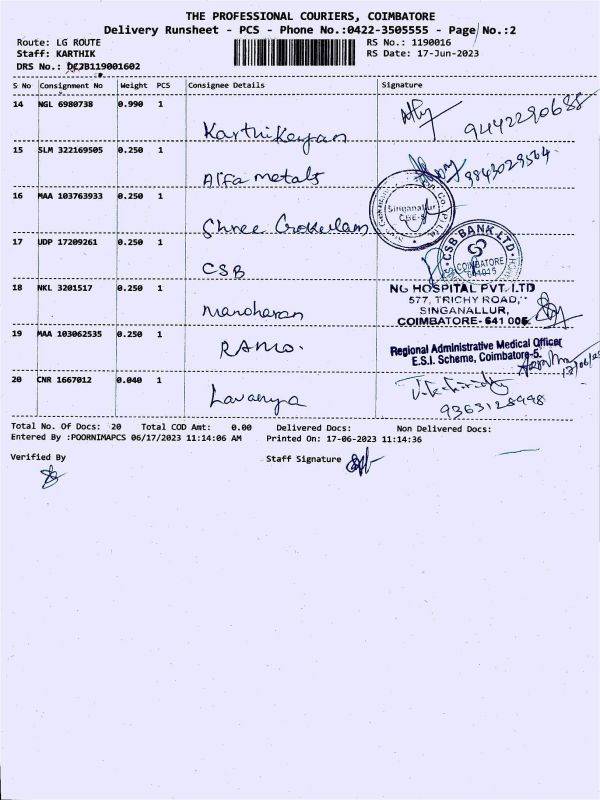 THE PROFESSIONAL COURIERS, COIMBATORE
Delivery Runsheet - PCS - Phone No.:0422-3505555 - Page No.:2
Route: LG ROUTE RS No.: 1190016
Staff: KARTHIK RS Date: 17-Jun-2023
DRS No.: DCJB119001602
S No Consignment No Weight PCS Consignee Details Signature
14 NGL 6980738 0.990 1
Karthikeyan 9442290688
15 SLM 322169505 0.250 1
Alfa metals 9843029504
16 MAA 103763933 0.250 1
Singanallur
CBE-5
Shree
17 UDP 17209261 0.250 1
CSB BANK LTD
COIMBATORE
641015
CSB
18 NKL 3201517 0.250 1
NG HOSPITAL PVT. LTD
577, TRICHY ROAD,
SINGANALLUR,
COIMBATORE-641 005
Manoharan
19 MAA 103062535 0.250 1
RAMO.
Regional Administrative Medical Officer
E.S.I. Scheme, Coimbatore-5.
20 CNR 1667012 0.040 1
Lavanya
9363128998
Total No. Of Docs: 20 Total COD Amt: 0.00 Delivered Docs: Non Delivered Docs:
Entered By :POORNIMAPCS 06/17/2023 11:14:06 AM Printed On: 17-06-2023 11:14:36
Verified By Staff Signature